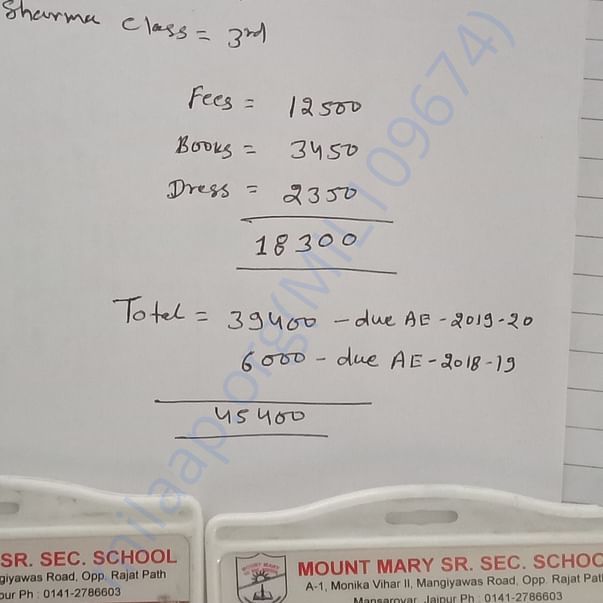 Sharma Class = 3rd
Fees = 12500
Books = 3450
Dress = 2350
18300
Totel = 39400 - due AE - 2019-20
6000 - due AE - 2018-19
45400
milaap.org(MIL109674)
SR. SEC. SCHOOL
giyawas Road, Opp. Rajat Path
pur Ph : 0141-2786603
MOUNT MARY SR. SEC. SCHOO
A-1, Monika Vihar II, Mangiyawas Road, Opp. Rajat Path
Mansarovar, Jaipur Ph : 0141-2786603